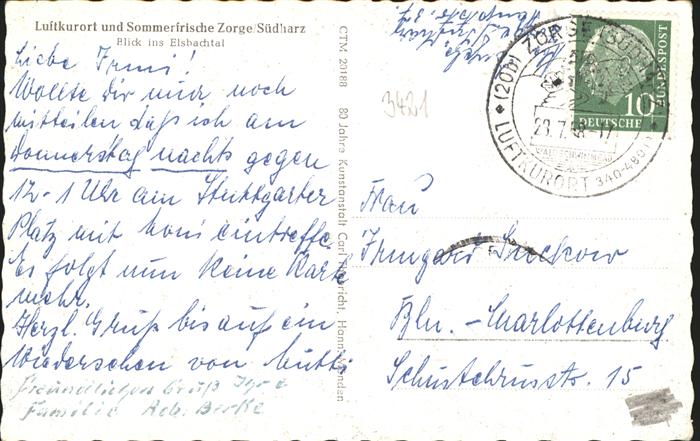 Luftkurort und Sommerfrische Zorge/Südharz
Blick ins Elsbachtal
Liebe Irmi!
Wollte Dir nur noch
mitteilen daß ich am
Donnerstag nachts gegen
12-1 Uhr am Stuttgarter
Platz mit eintreffe.
Es folgt nun keine Karte
mehr.
Herzl. Gruß bis auf ein
Wiedersehen von Mutti
Freundlichen Gruß Ihre
Familie Ach. Berke
CTM 20188 80 Jahre Kunstanstalt Carl Hann. Münden
3421
(20b) ZORGE (SÜDHARZ)
LUFTKURORT 340-480
23.7.
10
DEUTSCHE
BUNDESPOST
Frau
Irmgard Suckow
Bln.-Charlottenburg
Schustehrusstr. 15